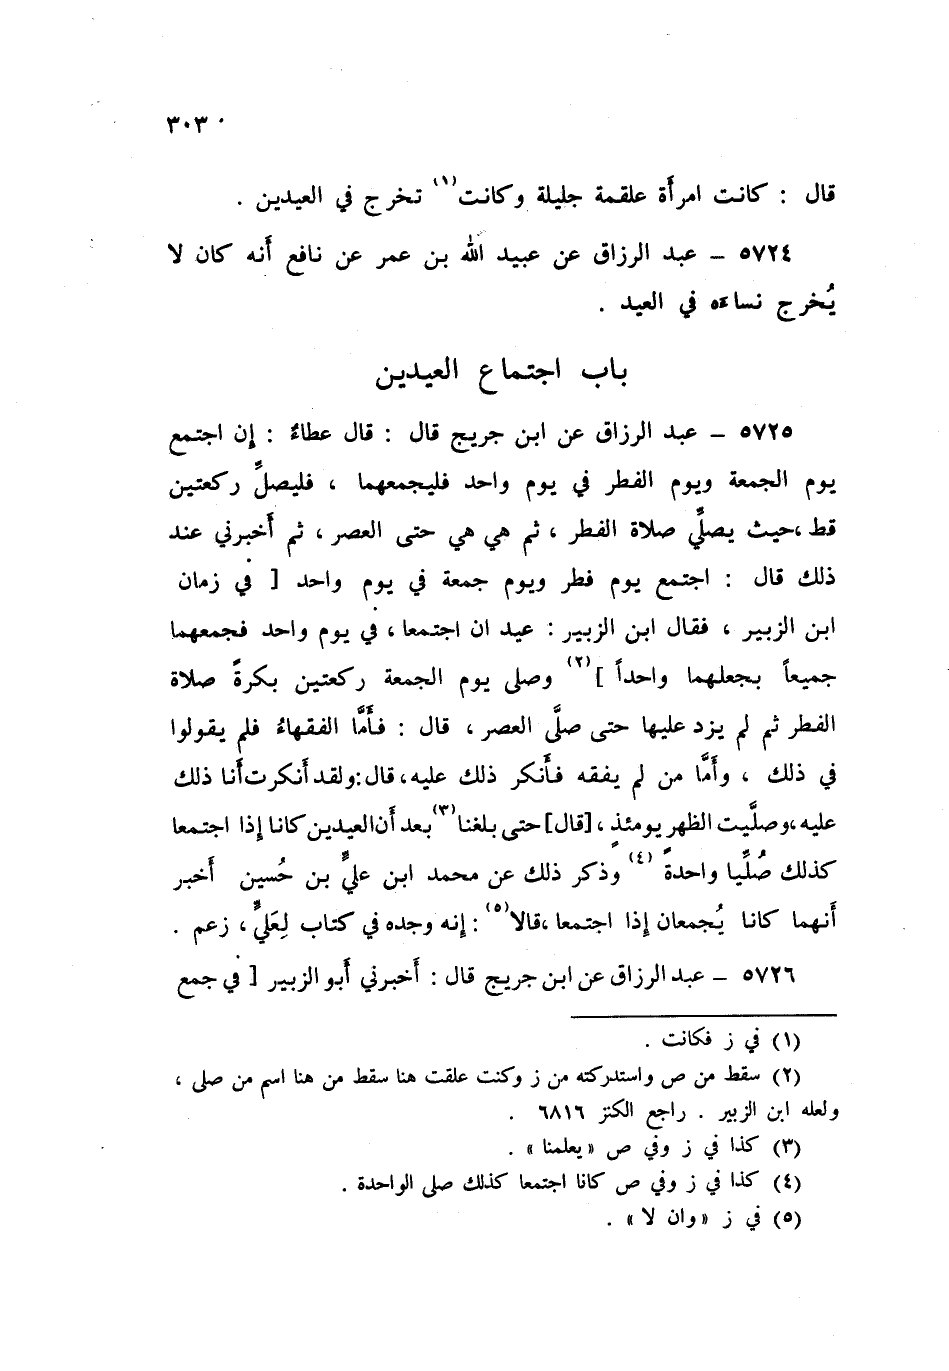 ٣٠٣
قال : كانت امرأة علقمة جليلة وكانت(١) تخرج في العيدين .
٥٧٢٤ – عبد الرزاق عن عبيد الله بن عمر عن نافع أنه كان لا
يُخرج نساءه في العيد .
باب اجتماع العيدين
٥٧٢٥ – عبد الرزاق عن ابن جريج قال : قال عطاءٌ : إن اجتمع
يوم الجمعة ويوم الفطر في يوم واحد فليجمعهما ، فليصلِّ ركعتين
قط ،حيث يصلِّي صلاة الفطر ، ثم هي هي حتى العصر ، ثم أخبرني عند
ذلك قال : اجتمع يوم فطر ويوم جمعة في يوم واحد [ في زمان
ابن الزبير ، فقال ابن الزبير : عيد ان اجتمعا ، في يوم واحد فجمعهما
جميعاً بجعلهما واحداً ](٢) وصلى يوم الجمعة ركعتين بكرةً صلاة
الفطر ثم لم يزد عليها حتى صلَّى العصر ، قال : فأمَّا الفقهاءُ فلم يقولوا
في ذلك ، وأمَّا من لم يفقه فأنكر ذلك عليه، قال:ولقد أنكرت أنا ذلك
عليه،وصلَّيت الظهر يومئذٍ ، [قال] حتى بلغنا(٣) بعد أن العيدين كانا إذا اجتمعا
كذلك صُلِّيا واحدةً (٤) وذكر ذلك عن محمد ابن عليِّ بن حُسين أخبر
أنهما كانا يُجمعان إذا اجتمعا ،قالا(٥) : إنه وجده في كتاب لِعَليٍّ ، زعم .
٥٧٢٦ – عبد الرزاق عن ابن جريج قال : أخبرني أبو الزبير [ في جمع
(١) في ز فكانت .
(٢) سقط من ص واستدركته من ز وكنت علقت هنا سقط من هنا اسم من صلى ،
ولعله ابن الزبير . راجع الكنز ٦٨١٦ .
(٣) كذا في ز وفي ص «يعلمنا» .
(٤) كذا في ز وفي ص كانا اجتمعا كذلك صلى الواحدة .
(٥) في ز «وان لا» .